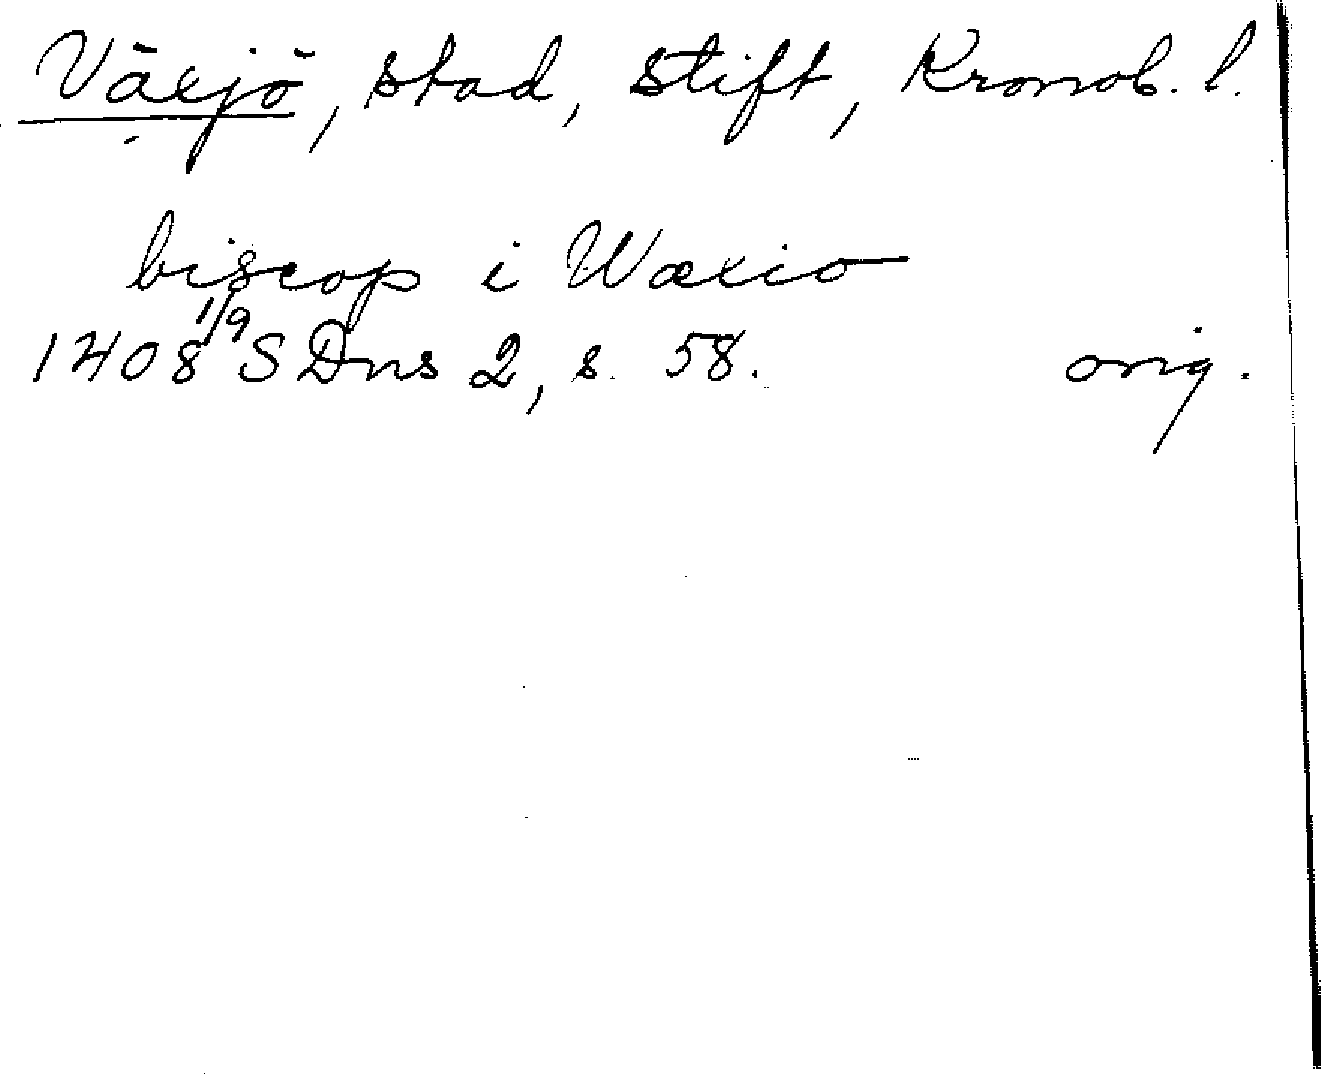 Växjö, stad, stift, Kronob. l.
biscop i Wæxio
1408 1/9 SDns 2, s. 58. orig.